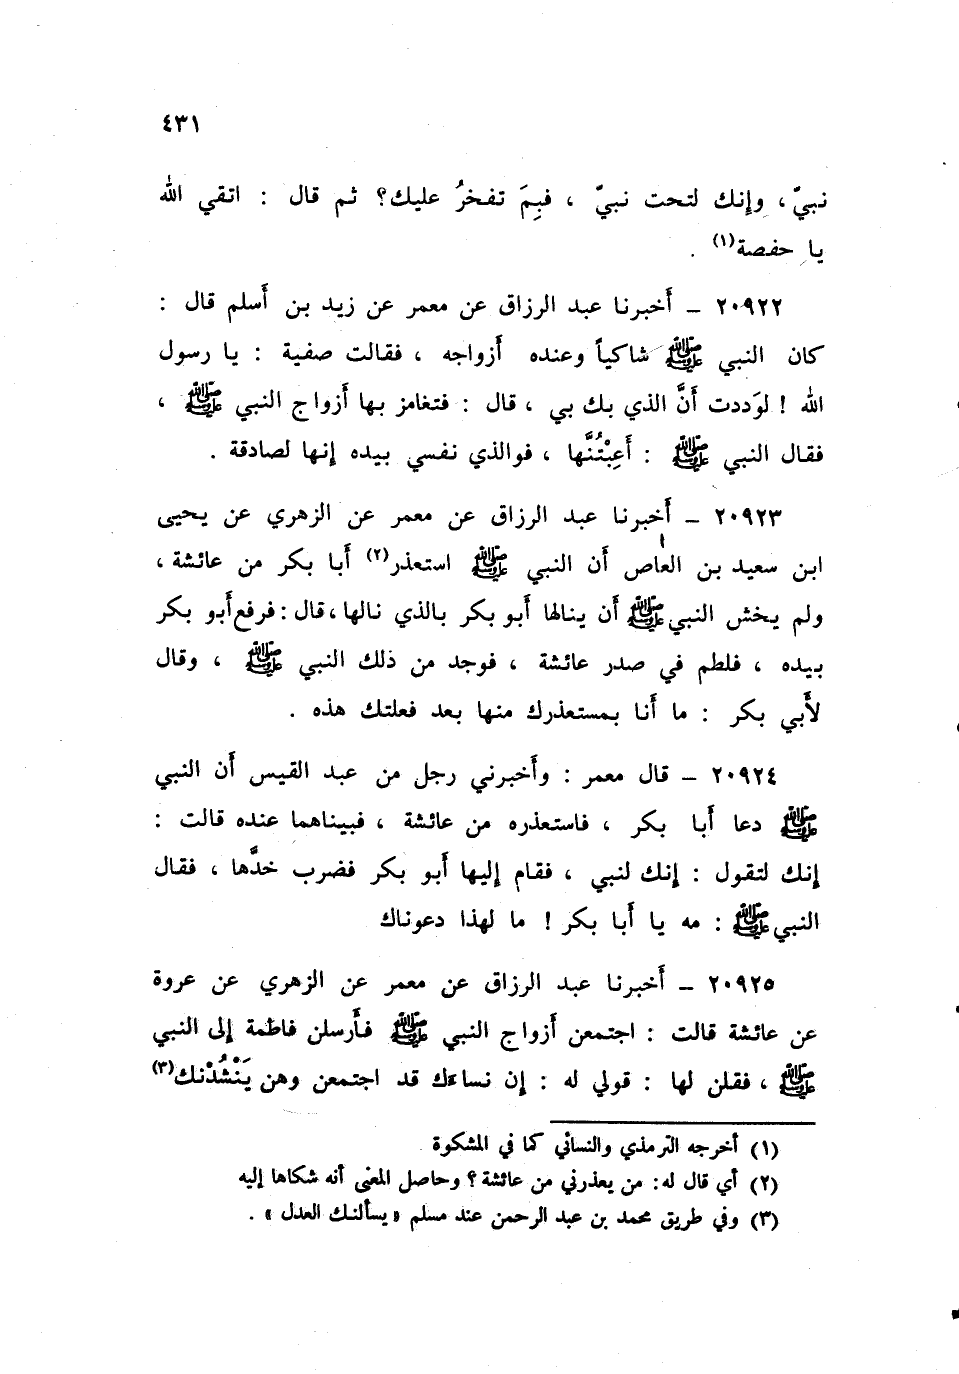 ٤٣١
نبيّ، وإنك لتحت نبيّ ، فبِمَ تفخرُ عليك؟ ثم قال : اتقي الله
يا حفصة(١) .
٢٠٩٢٢ ـ أخبرنا عبد الرزاق عن معمر عن زيد بن أسلم قال :
كان النبي ﷺ شاكياً وعنده أزواجه ، فقالت صفية : يا رسول
الله ! لوَددت أنَّ الذي بك بي ، قال : فتغامز بها أزواج النبي ﷺ ،
فقال النبي ﷺ : أَعِبْتُنَّها ، فوالذي نفسي بيده إنها لصادقة .
٢٠٩٢٣ ـ أخبرنا عبد الرزاق عن معمر عن الزهري عن يحيى
ابن سعيد بن العاص أن النبي ﷺ استعذر(٢) أبا بكر من عائشة ،
ولم يخش النبي ﷺ أن ينالها أبو بكر بالذي نالها، قال : فرفع أبو بكر
بيده ، فلطم في صدر عائشة ، فوجد من ذلك النبي ﷺ ، وقال
لأبي بكر : ما أنا بمستعذرك منها بعد فعلتك هذه .
٢٠٩٢٤ ـ قال معمر : وأخبرني رجل من عبد القيس أن النبي
ﷺ دعا أبا بكر ، فاستعذره من عائشة ، فبيناهما عنده قالت :
إنك لتقول : إنك لنبي ، فقام إليها أبو بكر فضرب خدَّها ، فقال
النبي ﷺ : مه يا أبا بكر ! ما لهذا دعوناك
٢٠٩٢٥ ـ أخبرنا عبد الرزاق عن معمر عن الزهري عن عروة
عن عائشة قالت : اجتمعن أزواج النبي ﷺ فأرسلن فاطمة إلى النبي
ﷺ ، فقلن لها : قولي له : إن نساءك قد اجتمعن وهن يَنْشُدْنك(٣)
(١) أخرجه الترمذي والنسائي كما في المشكوة
(٢) أي قال له: من يعذرني من عائشة؟ وحاصل المعنى أنه شكاها إليه
(٣) وفي طريق محمد بن عبد الرحمن عند مسلم «يسألنك العدل» .